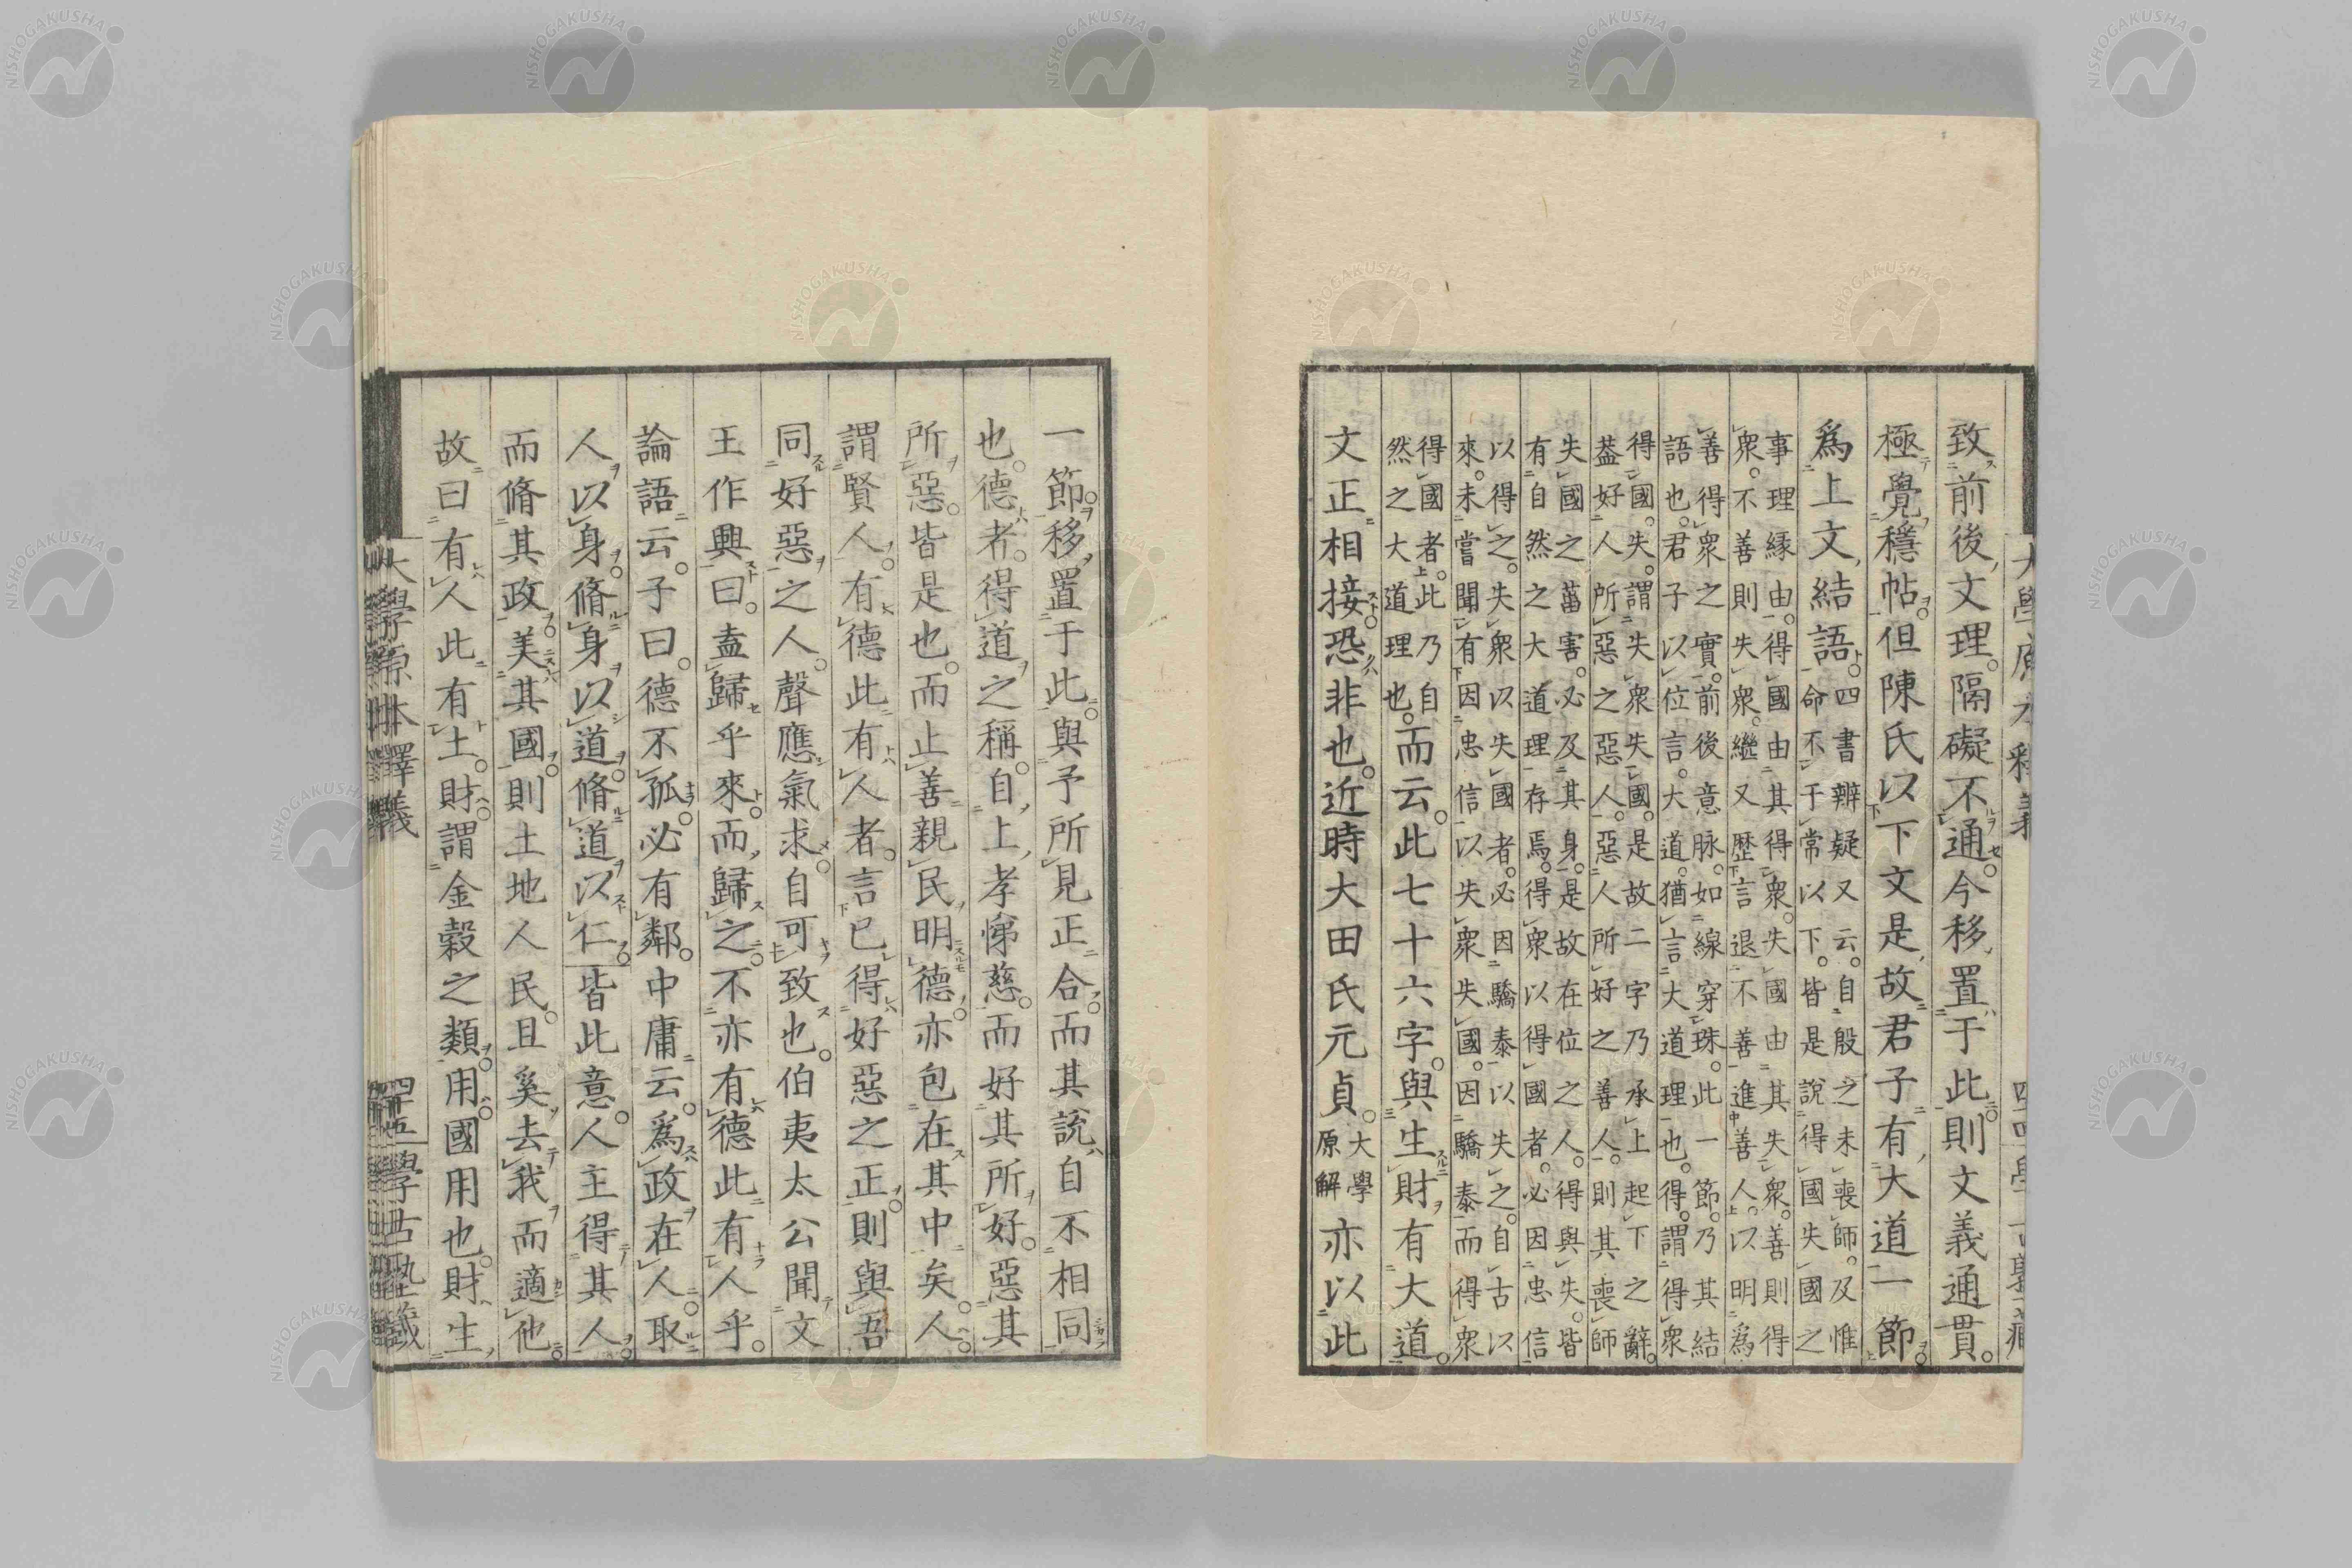 大學原本釋義
致前後文理。隔礙不通。今移置于此。則文義通貫。
極覺穩帖。但陳氏以下文是故君子有大道一節。
爲上文結語。
四書辨疑又云。自殷之未喪師。及惟
命不于常以下。皆是說得國失國之
事理縁由。得國由其得衆。失國由其失衆。善則得
衆。不善則失衆。繼又歴言退不善進善人。以明爲
善得衆之實。前後意脉。如線穿珠。此一節。乃其結
語也。君子以位言。大道。猶言大道理也。得。謂得衆
得國。失。謂失衆失國。是故二字乃承上起下之辭。
盖好人所惡之惡人。惡人所好之善人。則其喪師
失國之菑害。必及其身。是故在位之人。得與失。皆
有自然之大道理存焉。得衆以得國者。必因忠信
以得之。失衆以失國者。必因驕泰以失之。自古以
來。未嘗聞有因忠信以失衆失國。因驕泰而得衆
得國者。此乃自
然之大道理也。
而云。此七十六字。與生財有大道。
文正相接。恐非也。近時大田氏元貞。
大學
原解
亦以此
一節。移置于此。與予所見正合。而其說自不相同
也。德者。得道之稱。自上孝悌慈。而好其所好。惡其
所惡。皆是也。而止善親民明德。亦包在其中矣。人。
謂賢人。有德此有人者。言已得好惡之正。則與吾
同好惡之人。聲應氣求。自可致也。伯夷太公聞文
王作興曰。盍歸乎來。而歸之。不亦有德此有人乎。
論語云。子曰。德不孤。必有鄰。中庸云。爲政在人。取
人以身。脩身以道。脩道以仁。皆此意。人主得其人。
而脩其政。美其國。則土地人民。且奚去我而適他。
故曰有人此有土。財。謂金穀之類。用。國用也。財生
大學原本釋義
四十五
學古塾藏